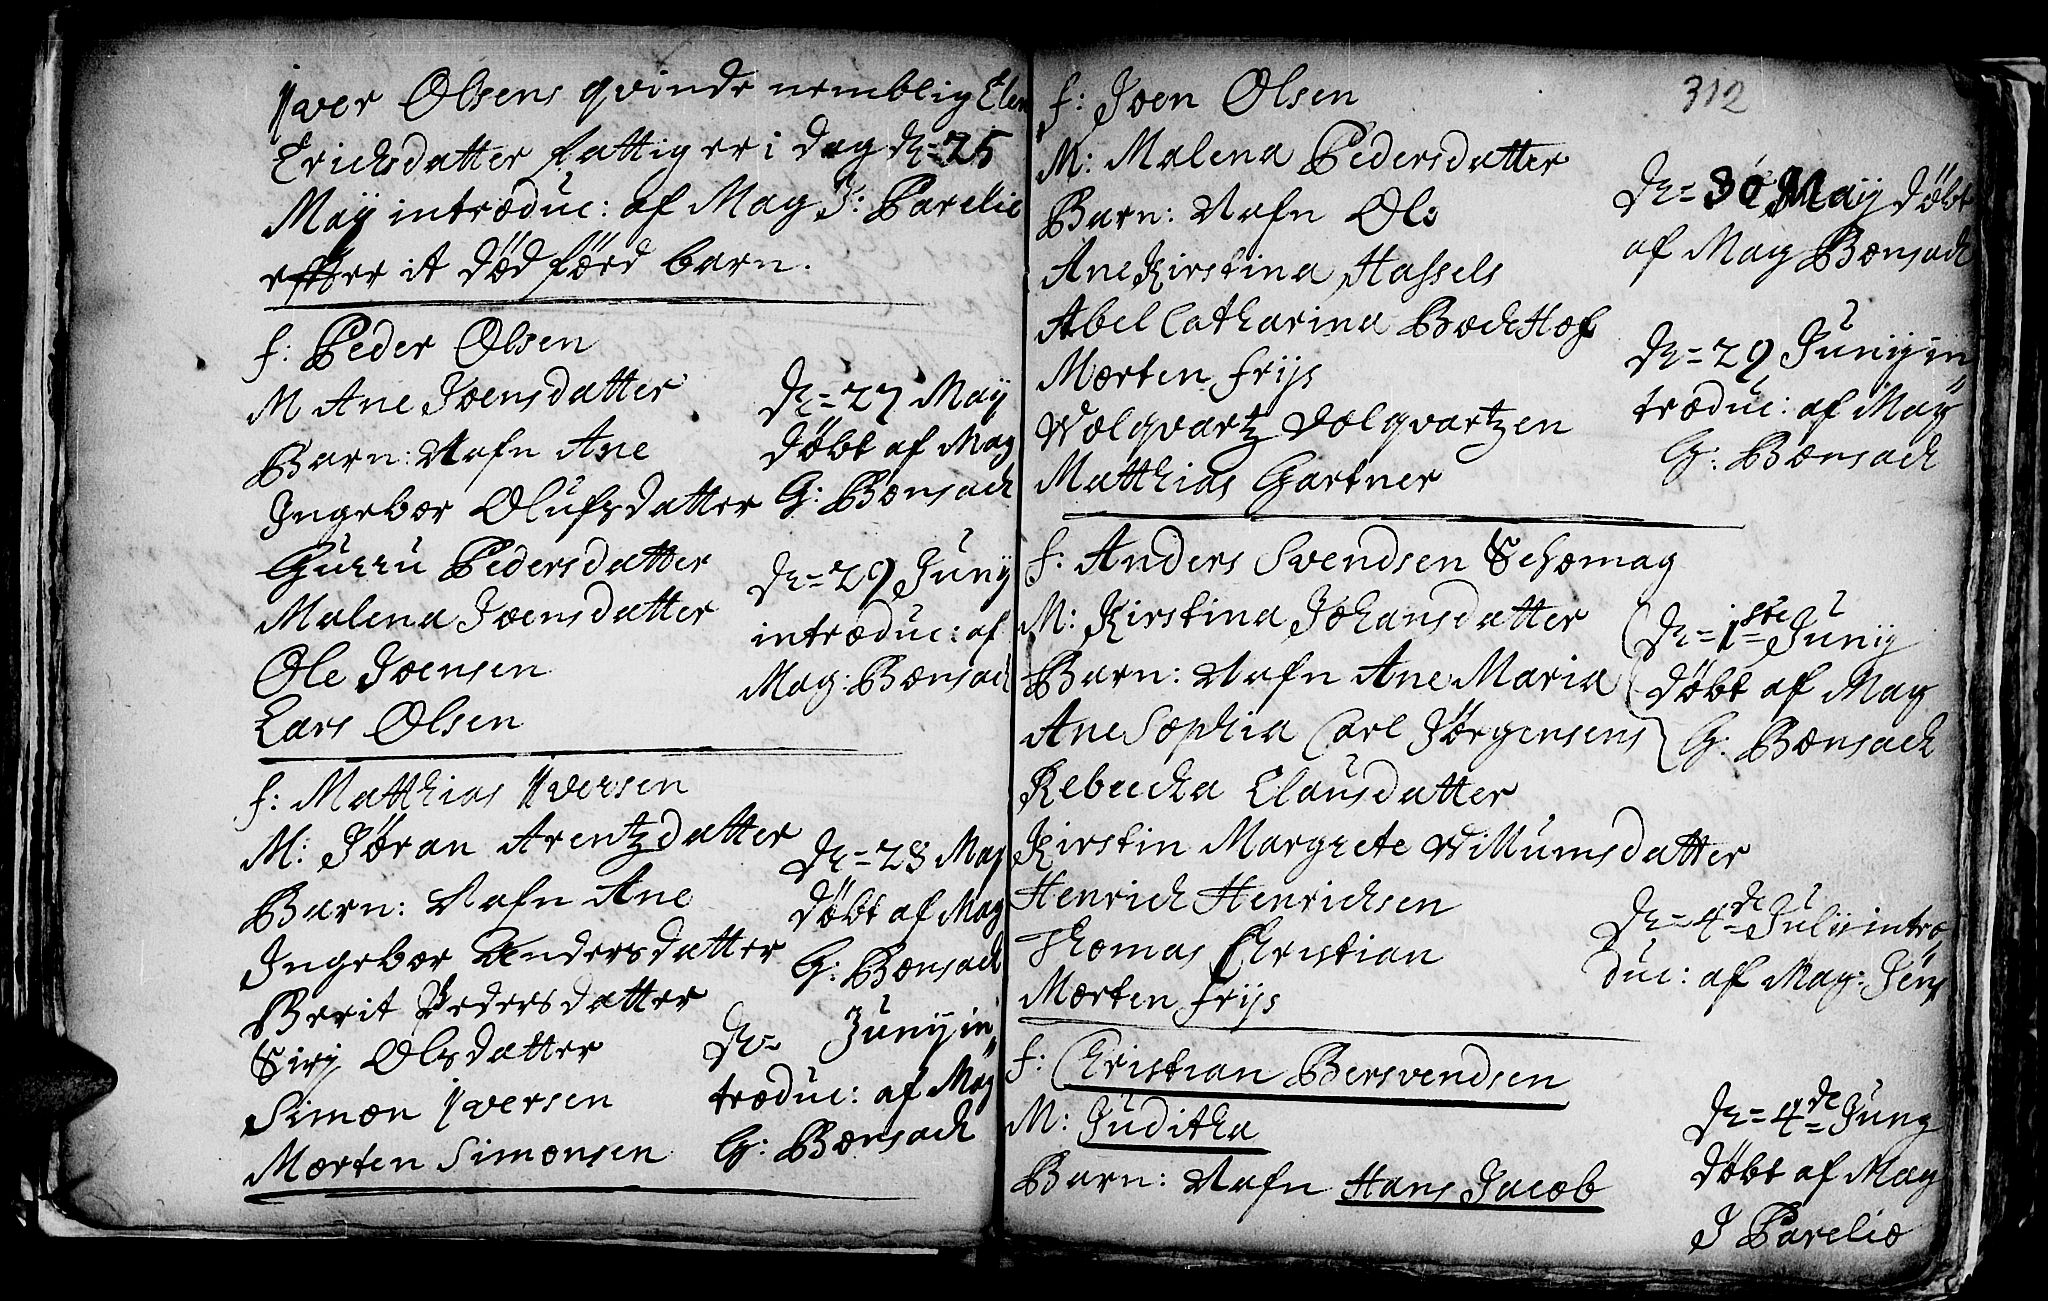 Iver Olsens qvinde nemblig Elen
Erichsdatter fattig er i dag dn= 25
Maÿ introduc: af Mag J: Parelio
efter it død föed barn.
f: Peder Olsen
M Ane Joensdatter
Barn: Nafn Ane
Ingebor Olufsdatter
Gurru Pedersdatter
Malena Joensdatter
Ole Joensen
Lars Olsen
dn= 27 Maÿ
döbt af Mag
G: Bonsach
dn= 29 Junÿ
introduc: af
Mag: Bonsach
f: Matthias Iversen
M: Jöran Arentzdatter
Barn: Nafn Ane
Ingebor Andersdatter
Berit Pedersdatter
Siri Olsdatter
Simon Iversen
Morten Simonsen
dn= 28 Maÿ
döbt af Mag
G: Bonsach
dn= Junÿ in
troduc: af Mag
G: Bonsach
312
f: Joen Olsen
M: Malena Pedersdatter
Barn: Nafn Ole
Ane Kirstina Hassels
Abel Catharina Bochhof
Morten frÿs
Wolqvartz Volqvartzen
Matthias Gartner
dn= 30 Maÿ döbt
af Mag Bonsach
dn= 29 Junÿ in
troduc: af Mag
G: Bonsach
f: Anders Svendsen Schomag
M: Kirstina Johansdatter
Barn: Nafn Ane Maria
Ane Sophia Carl Jörgensens
Rebecka Clausdatter
Kirstin Margrete Willumsdatter
Henrich Henrichsen
Thomas Christian
Morten frÿs
dn= 1ste Junÿ
döbt af Mag
G: Bonsach
dn= 4de Julÿ intro
duc: af Mag: Jens
f: Christian Bersvendsen
M: Juditha
Barn: Nafn Hans Jacob
dn= 4de Junÿ
döbt af Mag
J Parelio